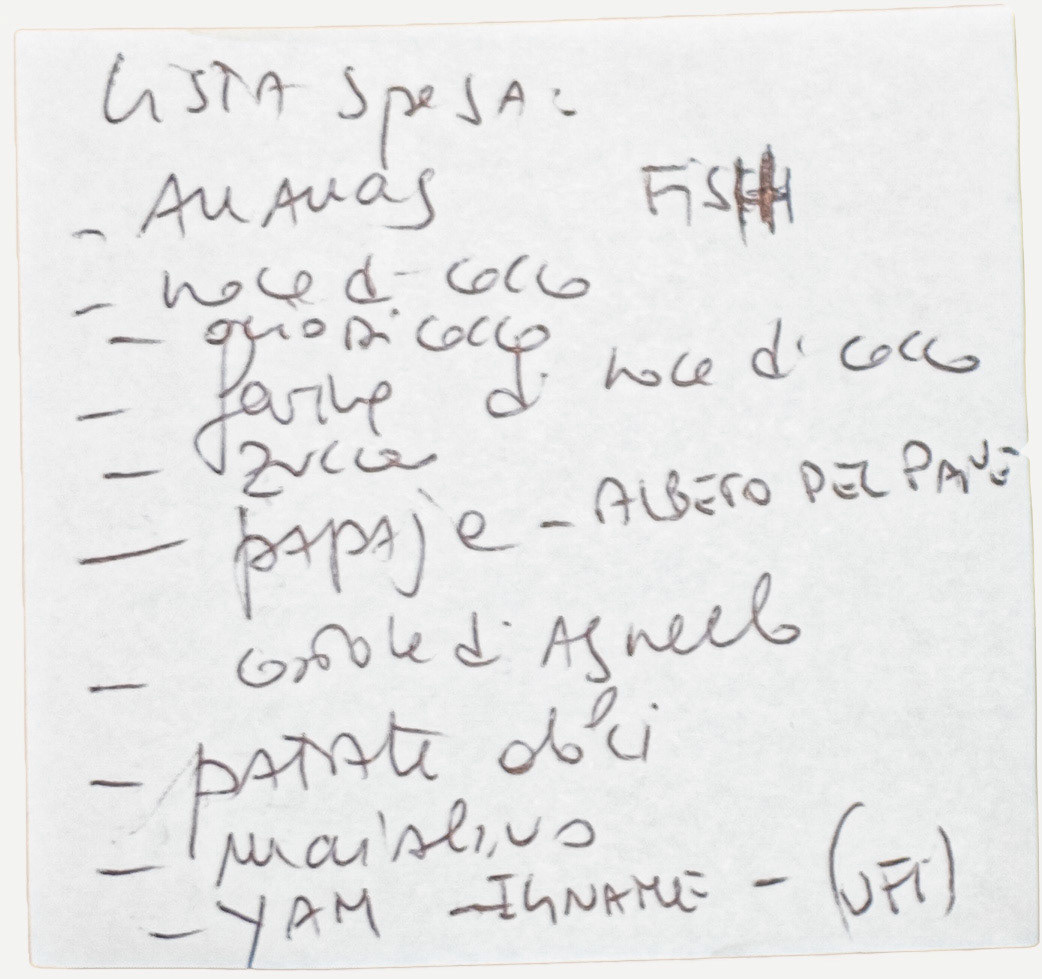 LISTA SpeSA:
- ANANAS FiSH
- noce di cocco
- olio di cocco
- farine di noce di cocco
- zucca
- papaje - ALBERO DEL PANE
- costole di Agnello
- patate dolci
- maialino
- YAM - IGNAME - (UFI)